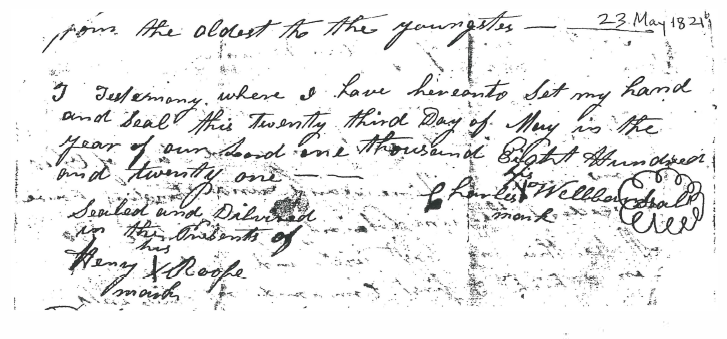 from the oldest to the youngster — 23 May 1821
I Testemony where I have hereonto Set my hand
and Seal this twenty third Day of May in the
year of our Lord one thousand Eight Hundred
and twenty one — —
his
Charles X Wellbar Seal
mark
Sealed and Dilivired
in the Presents of
his
Henry X Roope
mark